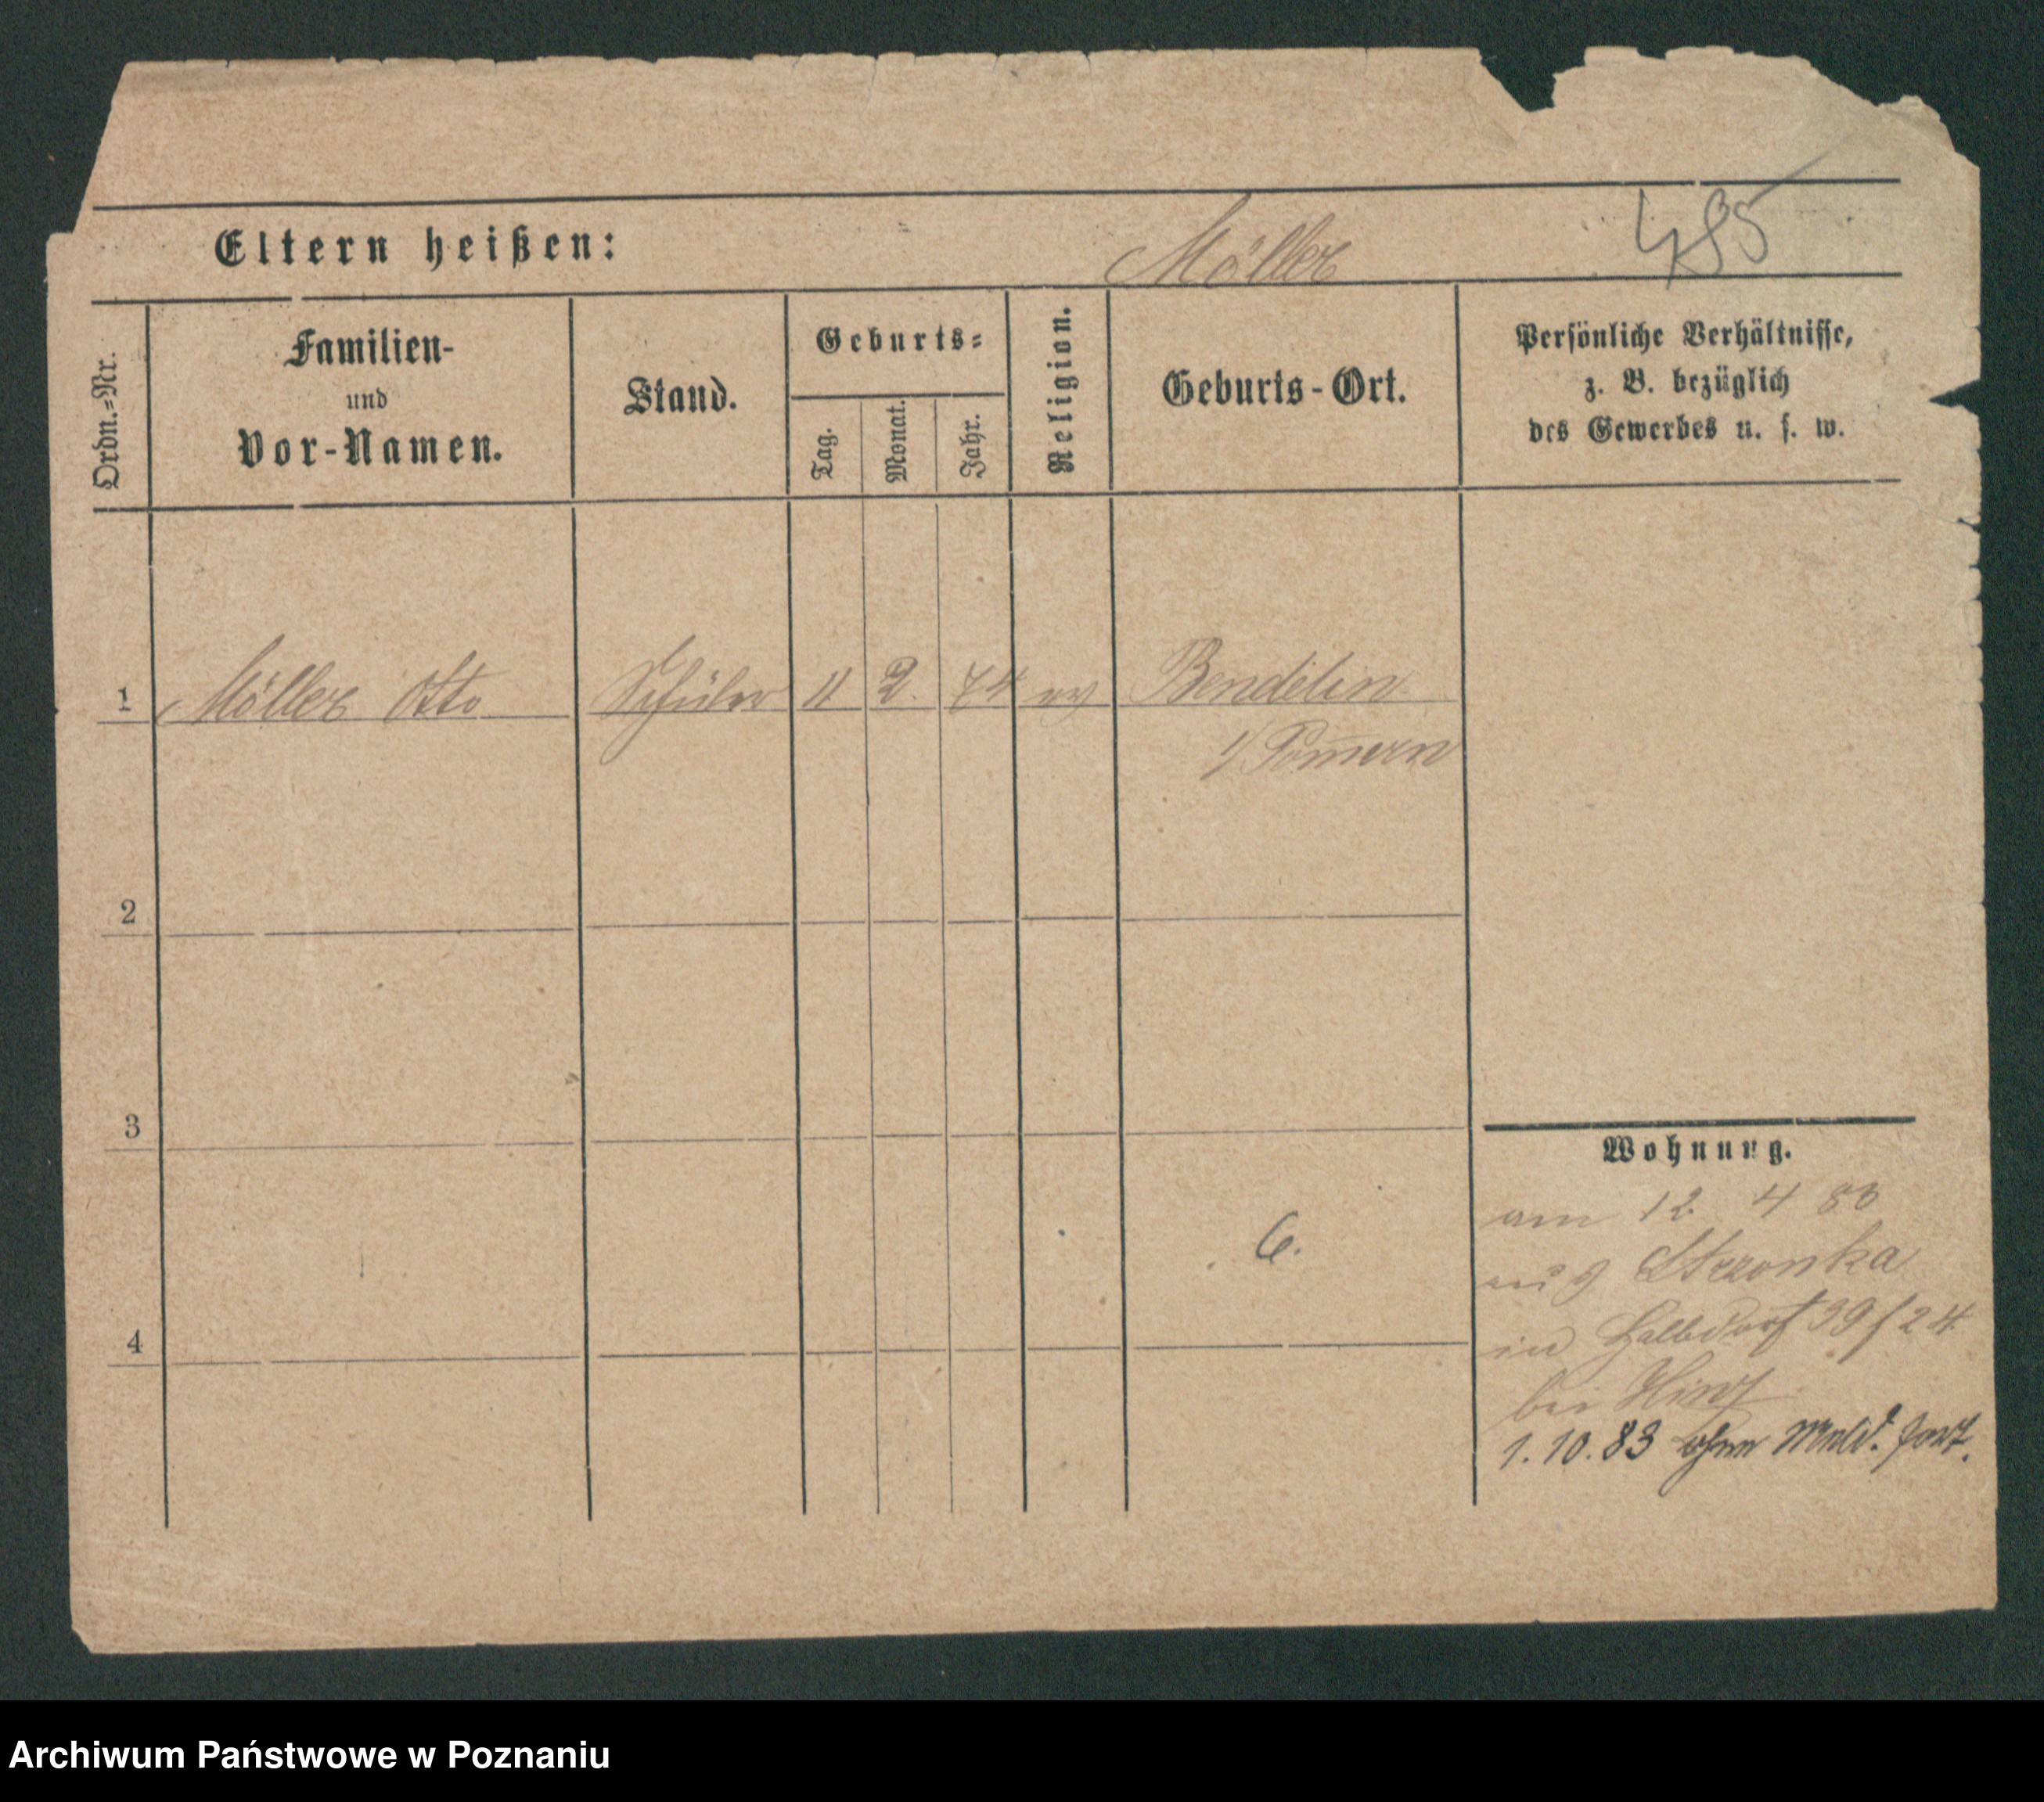 485
Eltern heißen: Möller
Ordn.=Nr.
Familien-
und
Vor-Namen.
Stand.
Geburts=
Tag.
Monat.
Jahr.
Religion.
Geburts-Ort.
Persönliche Verhältnisse,
z. B. bezüglich
des Gewerbes u. s. w.
1 Möller Otto Schüler 11 2. 74 ev Bendelin
i/ Pom̄ern
2
3
4
6.
Wohnung.
am 12. 4 83
aus
in Halbdorf 39/24
bei
1. 10. 83 ohne Meld. fort.
Archiwum Państwowe w Poznaniu